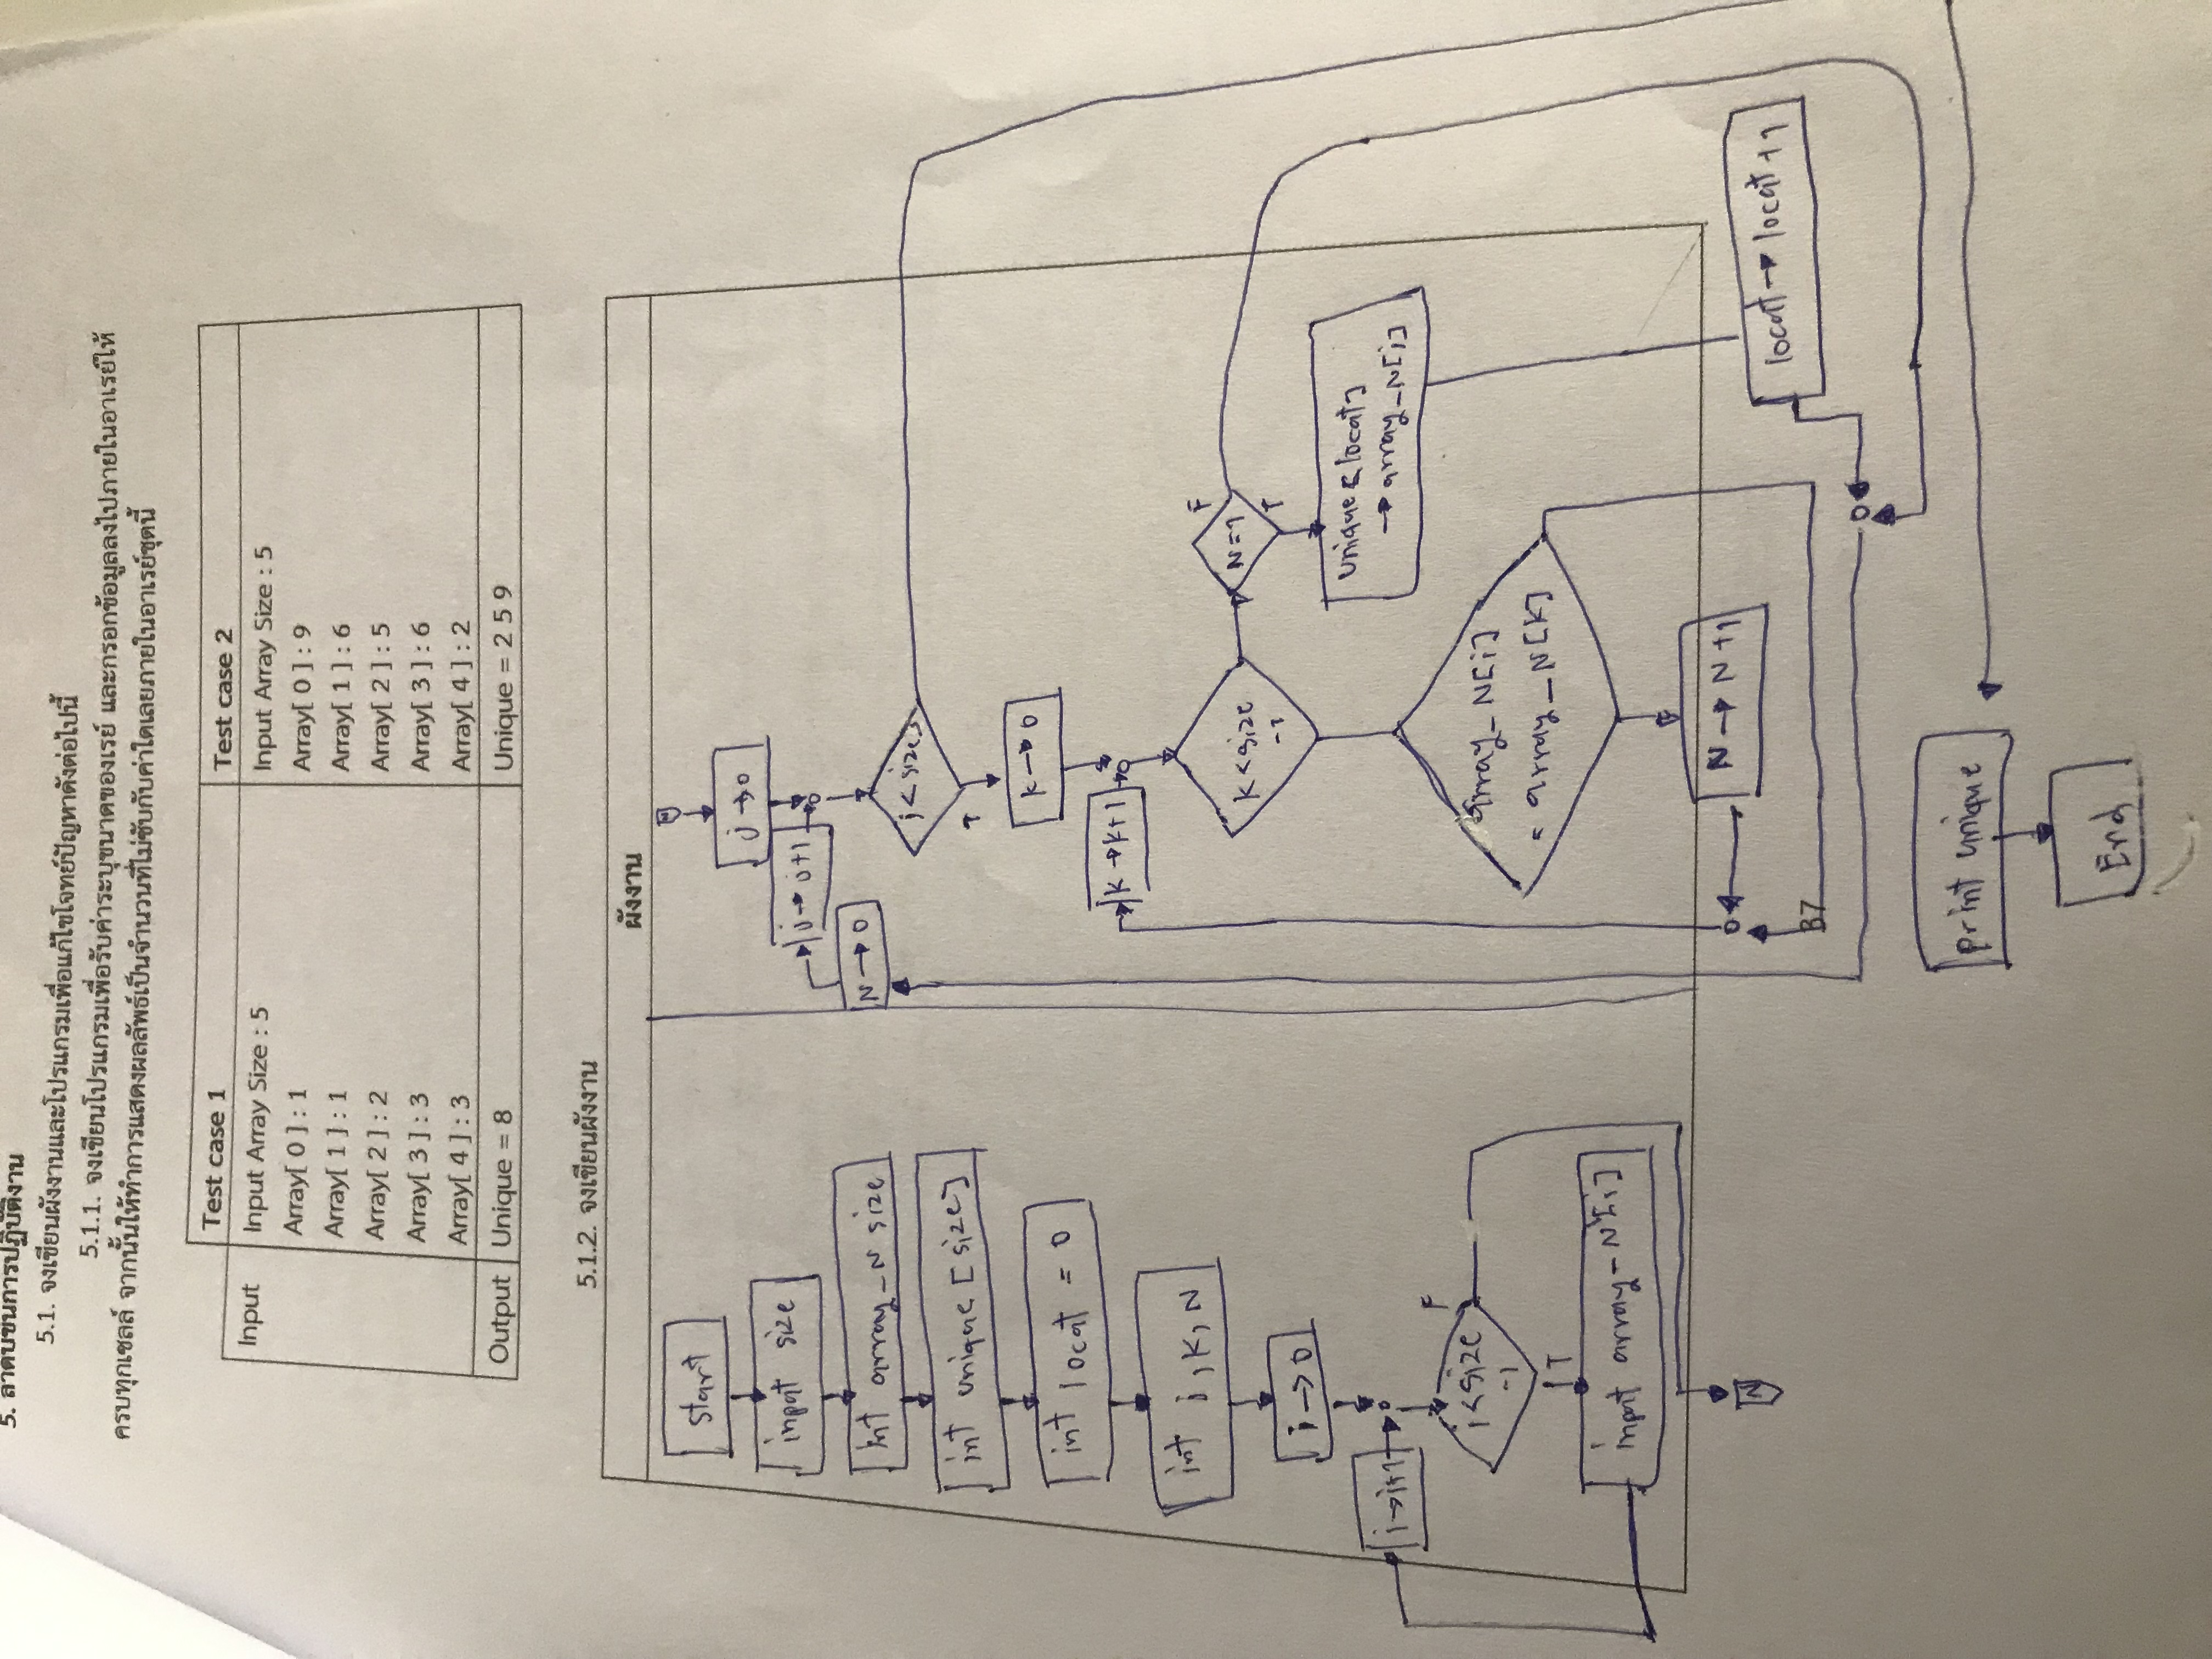 5. ลำดับขั้นการปฏิบัติงาน
5.1. จงเขียนผังงานและโปรแกรมเพื่อแก้ไขโจทย์ปัญหาดังต่อไปนี้
5.1.1. จงเขียนโปรแกรมเพื่อรับค่าระบุขนาดของเรย์ และกรอกข้อมูลลงไปภายในอาเรย์ให้
ครบทุกเซลล์ จากนั้นให้ทำการแสดงผลลัพธ์เป็นจำนวนที่ไม่ซับกับค่าใดเลยภายในอาเรย์ชุดนี้
Test case 1 Test case 2
Input Input Array Size : 5 Input Array Size : 5
Array[ 0 ] : 1 Array[ 0 ] : 9
Array[ 1 ] : 1 Array[ 1 ] : 6
Array[ 2 ] : 2 Array[ 2 ] : 5
Array[ 3 ] : 3 Array[ 3 ] : 6
Array[ 4 ] : 3 Array[ 4 ] : 2
Output Unique = 8 Unique = 2 5 9
5.1.2. จงเขียนผังงาน
ผังงาน
start
input size
int array_N size
int unique [size]
int locat = 0
int i, k, N
i → 0
i → i+1
i < size
-1
F
T
input array-N[i]
N
N
j → 0
j → j+1
N → 0
i < size
T
k → 0
k → k+1
k < size
-1
N = 1
F
T
unique[locat]
→ array_N[i]
array_N[i]
= array_N[k]
N → N+1
locat → locat+1
37
print unique
End